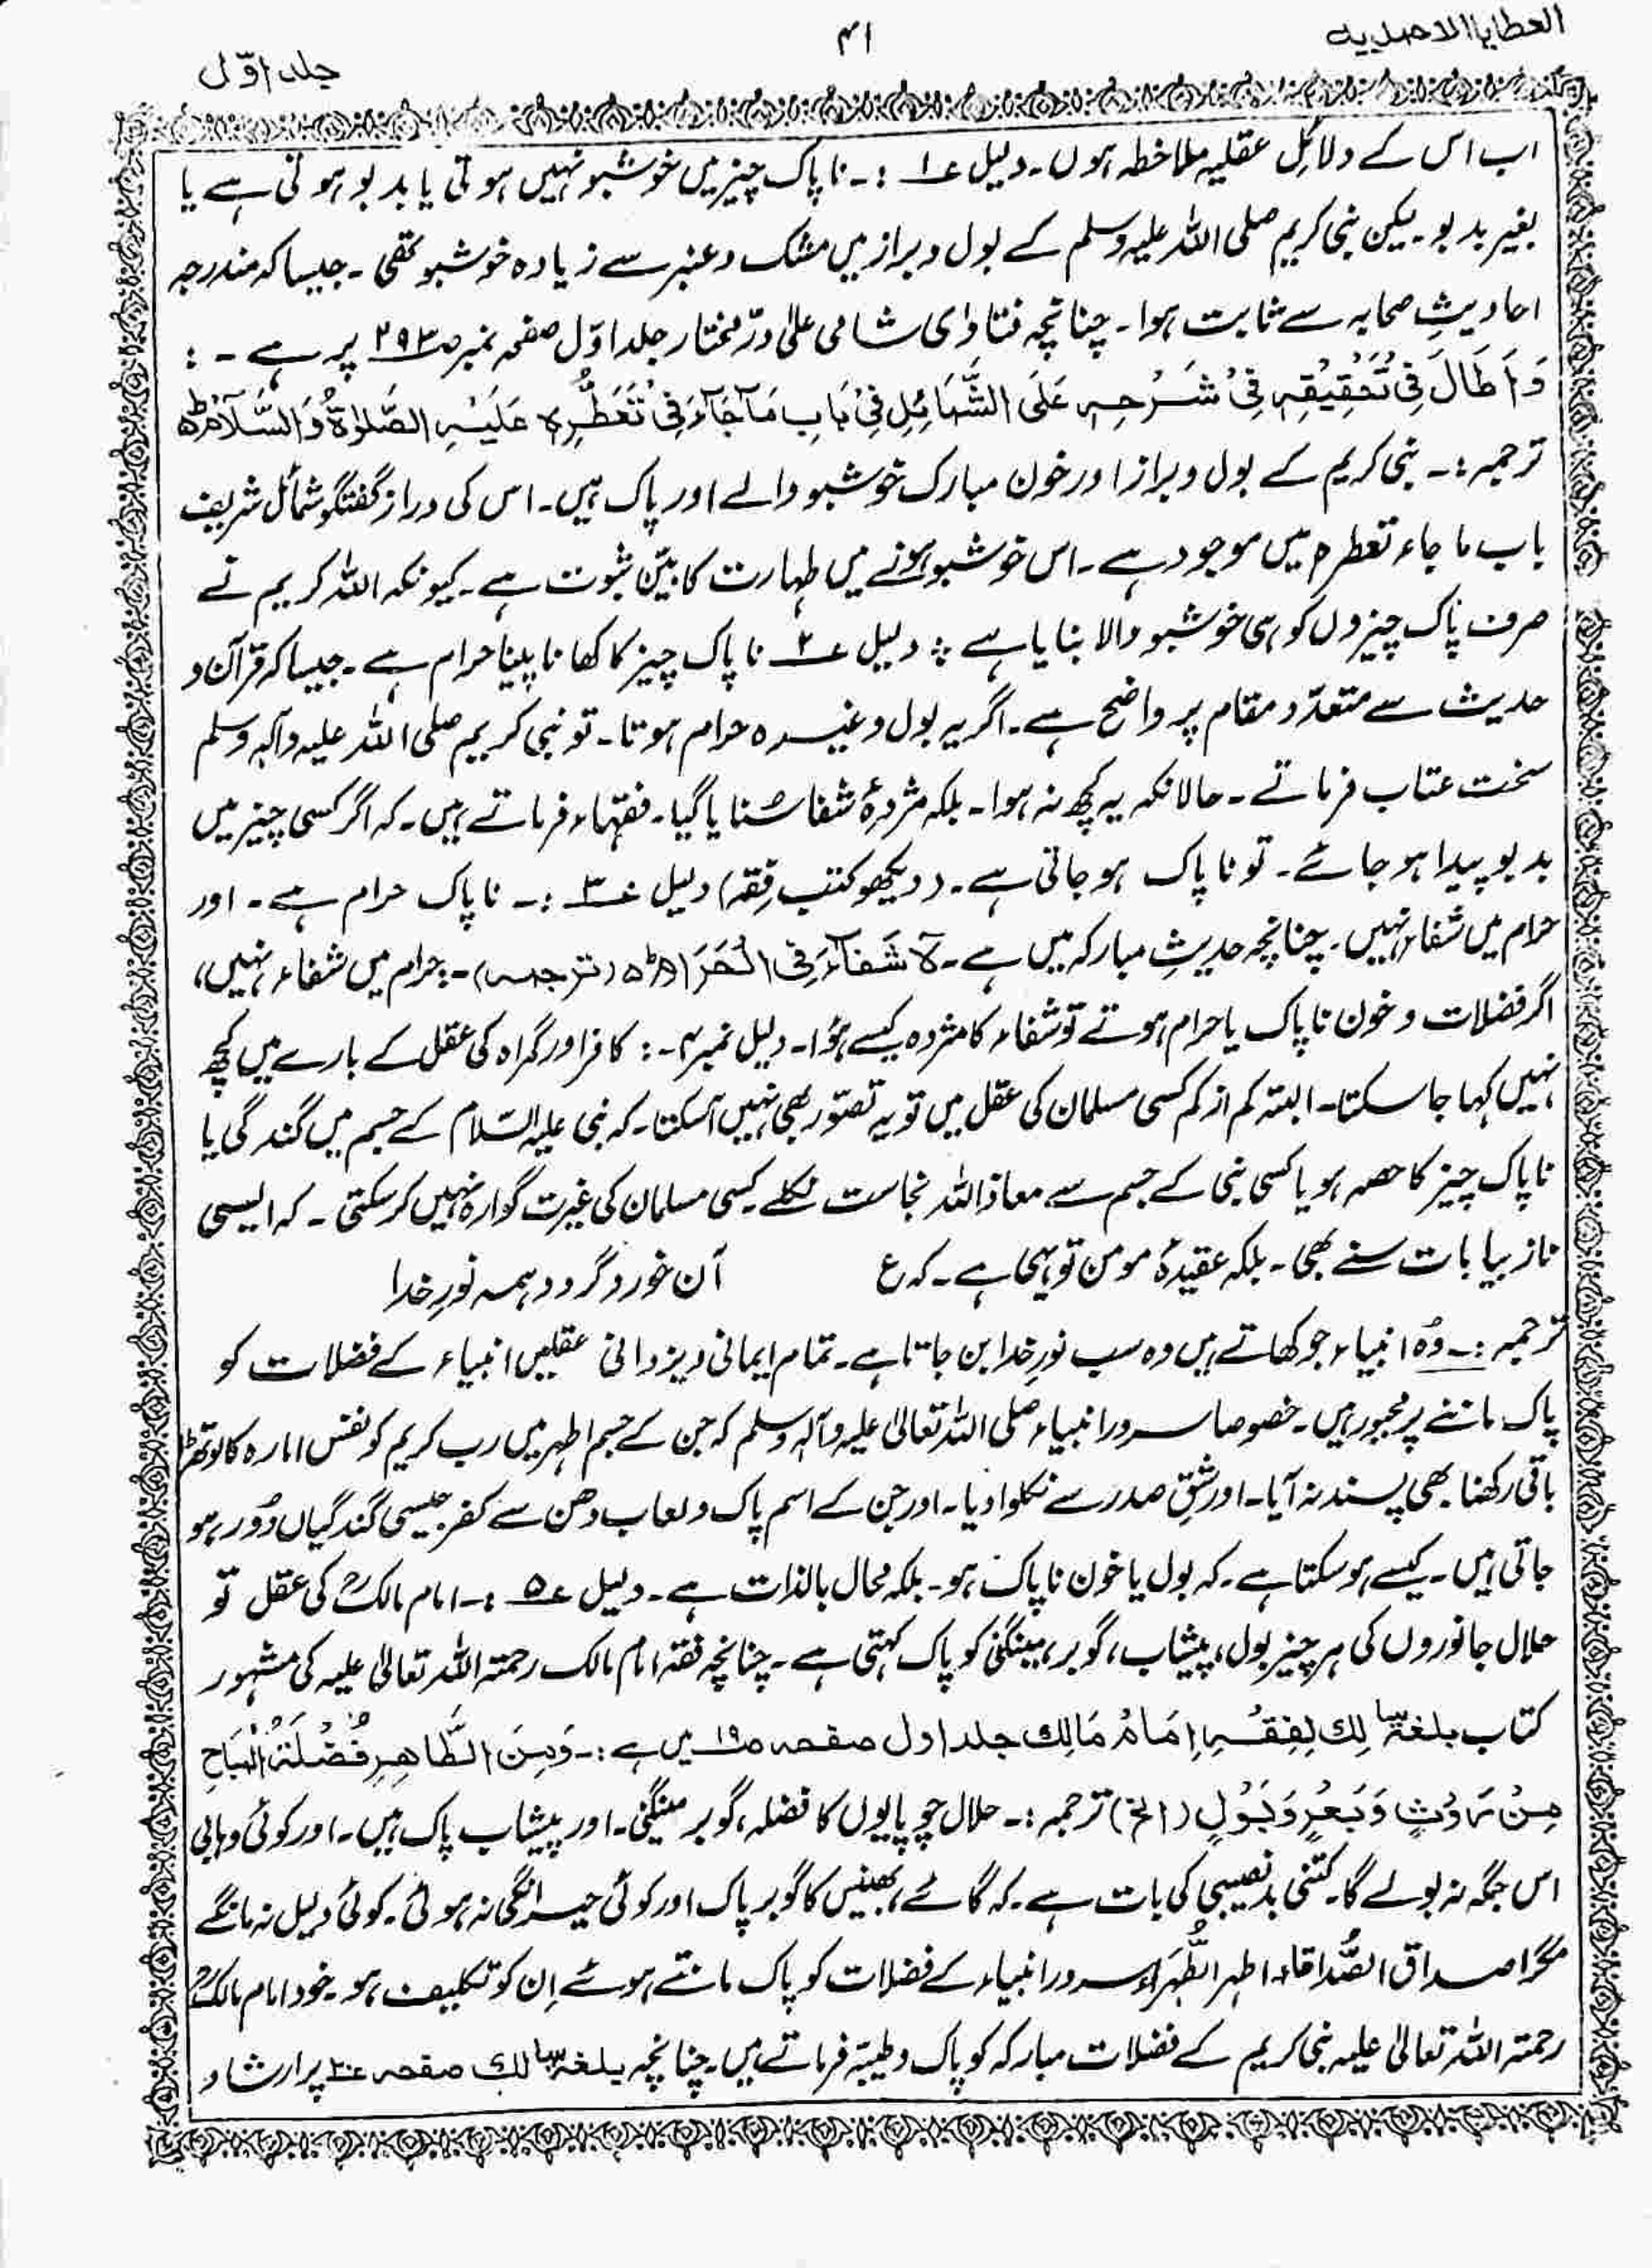 العطایا الاحمدیه
۴۱
جلد اوّل
اب اس کے دلائل عقلیہ ملاحظہ ہوں۔ دلیل ۱؎ :۔ ناپاک چیز میں خوشبو نہیں ہوتی یا بدبو ہوتی ہے یا
بغیر بدبو۔ لیکن نبی کریم صلی اللہ علیہ وسلم کے بول و براز میں مشک و عنبر سے زیادہ خوشبو تھی۔ جیسا کہ مندرجہ
احادیثِ صحابہ سے ثابت ہوا۔ چنانچہ فتاوای شامی علیٰ درّ مختار جلد اوّل صفحہ نمبر ۲۹۳ پر ہے ۔ :
وَاَطَالَ فِیْ تَحْقِیْقِهٖ فِیْ شَرْحِهٖ عَلَی الشَّمَائِلِ فِیْ بَابِ مَآ جَآءَ فِیْ تَعَطُّرِهٖ عَلَیْهِ الصَّلٰوةُ وَالسَّلَامُ ط
ترجمہ :۔ نبی کریم کے بول و براز اور خون مبارک خوشبو والے اور پاک ہیں۔ اس کی دراز گفتگو شمائل شریف
باب ما جاء تعطرہ میں موجود ہے۔ اس خوشبو ہونے میں طہارت کا بیّن ثبوت ہے۔ کیونکہ اللہ کریم نے
صرف پاک چیزوں کو ہی خوشبو والا بنایا ہے ؛ دلیل ۲؎ ناپاک چیز کا کھانا پینا حرام ہے۔ جیسا کہ قرآن و
حدیث سے متعدّد مقام پر واضح ہے۔ اگر یہ بول وغیرہ حرام ہوتا۔ تو نبی کریم صلی اللہ علیہ وآلہ وسلم
سخت عتاب فرماتے۔ حالانکہ یہ کچھ نہ ہوا۔ بلکہ مژدۂ شفا سُنایا گیا۔ فقہاء فرماتے ہیں۔ کہ اگر کسی چیز میں
بدبو پیدا ہو جائے۔ تو ناپاک ہو جاتی ہے۔ (دیکھو کتب فِقہ) دلیل ۳؎ :۔ ناپاک حرام ہے۔ اور
حرام میں شفاء نہیں۔ چنانچہ حدیثِ مبارکہ میں ہے۔ لَآ شَفَآءَ فِی الْحَرَامِ ط ۵ (ترجمہ)۔ حرام میں شفاء نہیں،
اگر فضلات و خون ناپاک یا حرام ہوتے تو شفاء کا مژدہ کیسے ہؤا۔ دلیل نمبر ۴ ۔: کافر اور گمراہ کی عقل کے بارے میں کچھ
نہیں کہا جا سکتا۔ البتہ کم از کم کسی مسلمان کی عقل میں تو یہ تصوّر بھی نہیں آ سکتا۔ کہ نبی علیہ السّلام کے جسم میں گندگی یا
ناپاک چیز کا حصہ ہو یا کسی نبی کے جسم سے معاذ اللہ نجاست نکلے کسی مسلمان کی غیرت گوارہ نہیں کر سکتی ۔ کہ ایسی
نازیبا بات سنے بھی۔ بلکہ عقیدۂ مومن تو یہی ہے۔ کہ ع آں خورد گردد ہمہ نورِ خدا
ترجمہ :۔ وُہ انبیاء جو کھاتے ہیں وہ سب نورِ خدا بن جاتا ہے۔ تمام ایمانی و یزدانی عقلیں انبیاء کے فضلات کو
پاک ماننے پر مجبور ہیں۔ خصوصاً سرور انبیاء صلی اللہ تعالیٰ علیہ وآلہ وسلم کہ جن کے جسم اطہر میں رب کریم کو نفس امارہ کا لوتھڑا
باقی رکھنا بھی پسند نہ آیا۔ اور شقِ صدر سے نکلوا دیا۔ اور جن کے اسم پاک و لعاب دھن سے کفر جیسی گندگیاں دُور ہو
جاتی ہیں۔ کیسے ہو سکتا ہے۔ کہ بول یا خون ناپاک ہو۔ بلکہ محال بالذات ہے۔ دلیل ۵؎ :۔ امام مالکؒ کی عقل تو
حلال جانوروں کی ہر چیز بول، پیشاب، گوبر، مینگنی کو پاک کہتی ہے۔ چنانچہ فقہ امام مالک رحمتہ اللہ تعالیٰ علیہ کی مشہور
کتاب بلغة السالك لِفِقْهِ اِمَامُ مَالِك جلد اول صفحہ ۱۹ میں ہے :۔ وَمِنَ الطَّاهِرِ فُضْلَةُ الْمُبَاحِ
مِنْ رَوْثٍ وَبَعْرٍ وَبَوْلٍ (الخ) ترجمہ :۔ حلال چوپایوں کا فضلہ، گوبر مینگنی۔ اور پیشاب پاک ہیں۔ اور کوئی وہابی
اس جگہ نہ بولے گا۔ کتنی بدنصیبی کی بات ہے۔ کہ گائے، بھینس کا گوبر پاک اور کوئی حیرانگی نہ ہوئی۔ کوئی دلیل نہ مانگے
مگر اصداق الصُّدَاقاء اطہر الطُّہَرَاء سرور انبیاء کے فضلات کو پاک مانتے ہوئے اِن کو تکلیف ہو۔ خود امام مالکؒ
رحمتہ اللہ تعالیٰ علیہ نبی کریم کے فضلات مبارکہ کو پاک و طیّبہ فرماتے ہیں۔ چنانچہ بلغة السالك صفحہ ۲۰ پر ارشاد